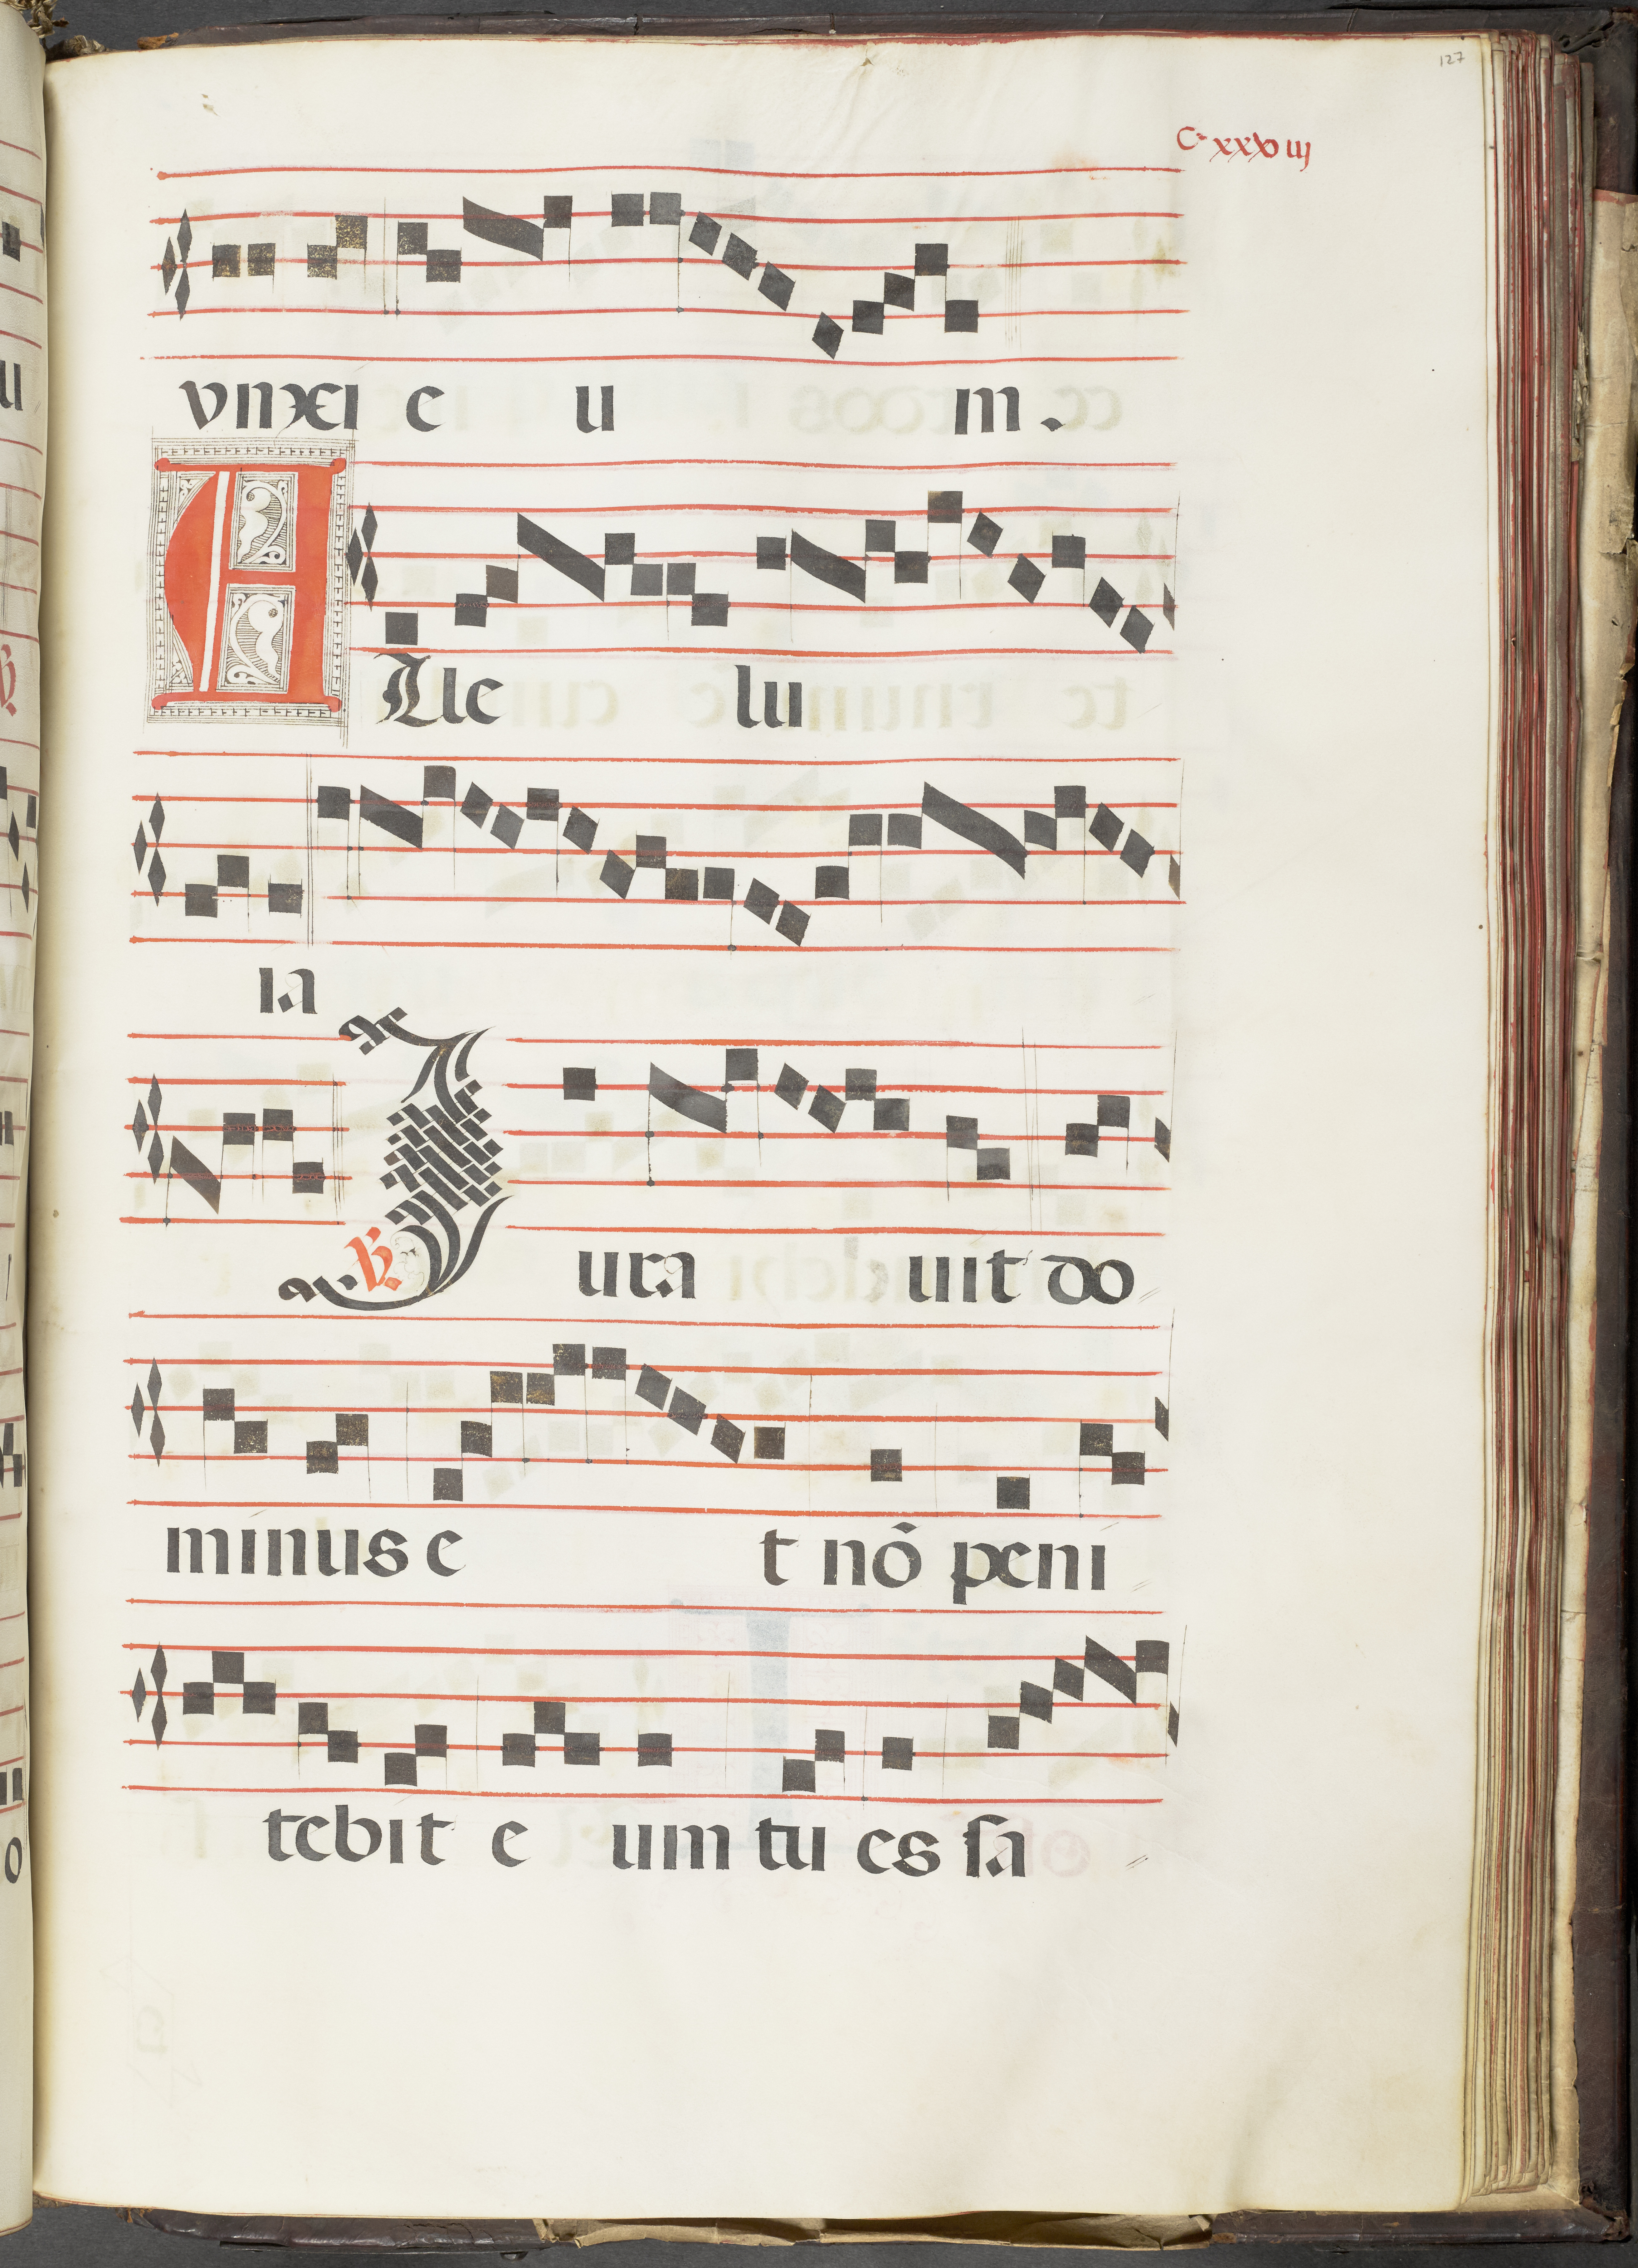 127
C xxxviij
vnxei e u m.
Alle lu
ia
℣. Iura uit do
minus e t nō peni
tebit e um tu es sa